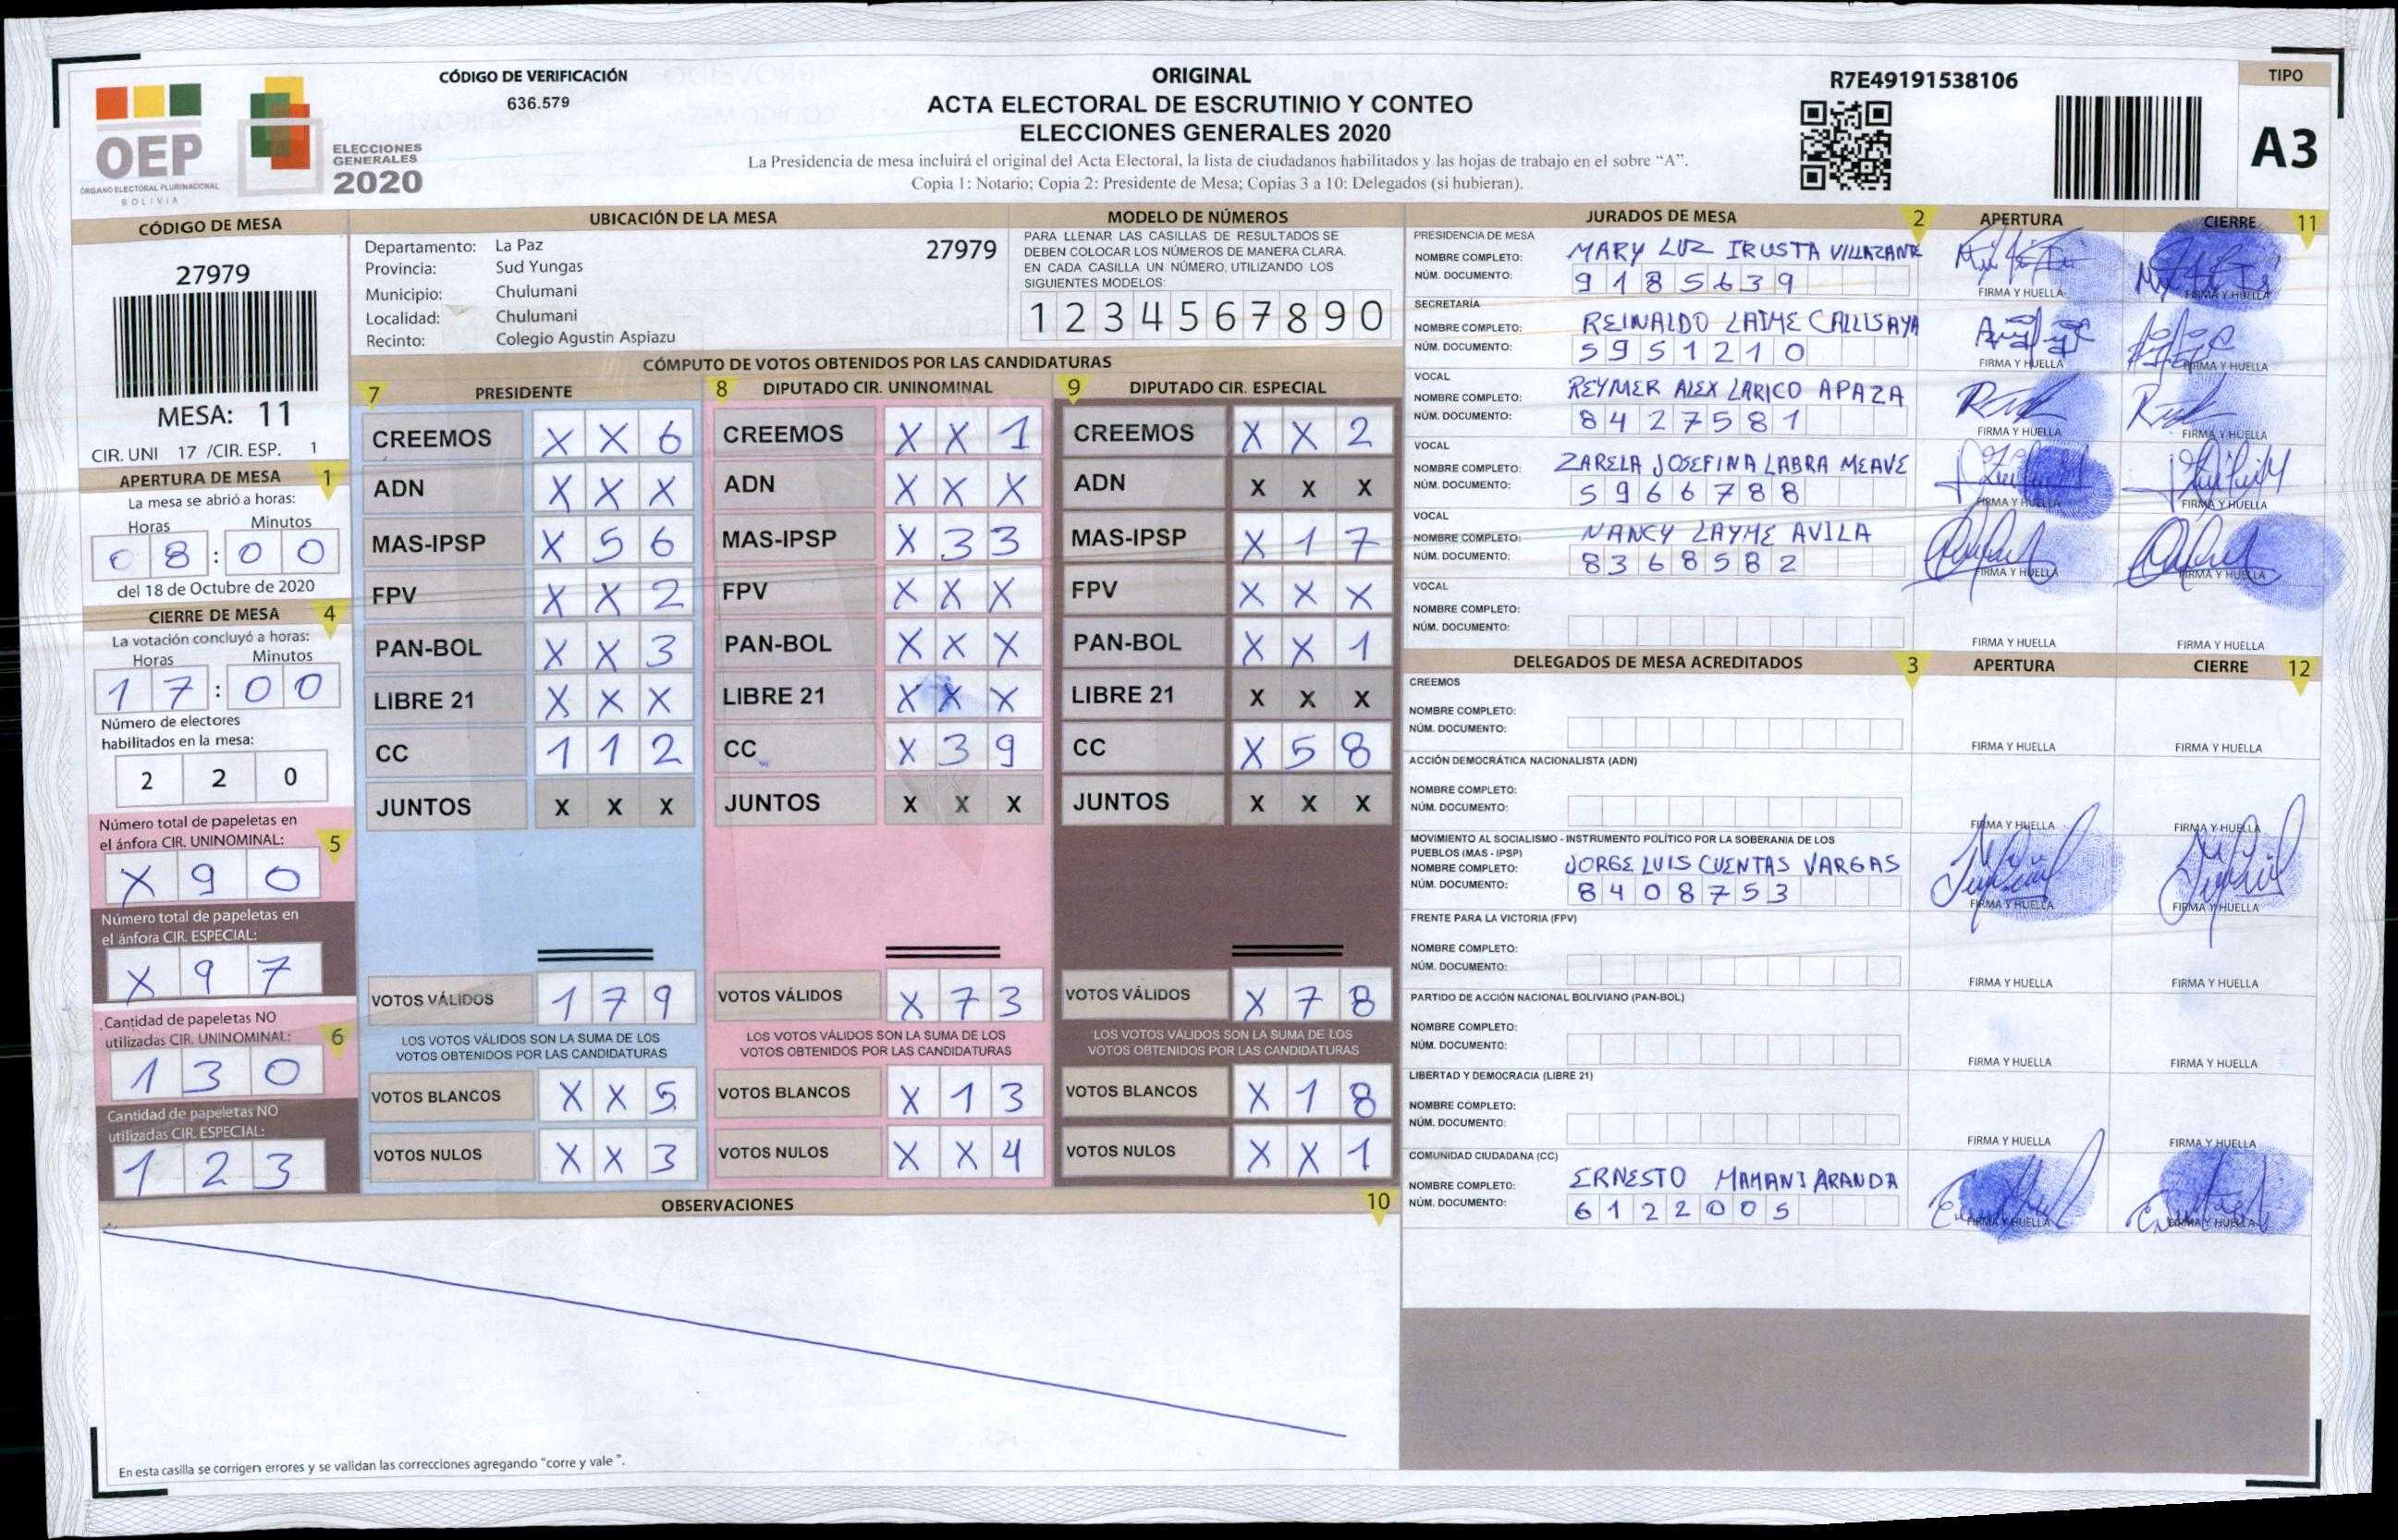 OEP
ÓRGANO ELECTORAL PLURINACIONAL
BOLIVIA
ELECCIONES
GENERALES
2020
CÓDIGO DE VERIFICACIÓN
636.579
ORIGINAL
ACTA ELECTORAL DE ESCRUTINIO Y CONTEO
ELECCIONES GENERALES 2020
La Presidencia de mesa incluirá el original del Acta Electoral, la lista de ciudadanos habilitados y las hojas de trabajo en el sobre “A”.
Copia 1: Notario; Copia 2: Presidente de Mesa; Copias 3 a 10: Delegados (si hubieran).
R7E49191538106
TIPO
A3
CÓDIGO DE MESA
27979
MESA: 11
CIR. UNI 17 /CIR. ESP. 1
APERTURA DE MESA 1
La mesa se abrió a horas:
Horas Minutos
0 8 : 0 0
del 18 de Octubre de 2020
CIERRE DE MESA 4
La votación concluyó a horas:
Horas Minutos
1 7 : 0 0
Número de electores
habilitados en la mesa:
2 2 0
Número total de papeletas en
el ánfora CIR. UNINOMINAL: 5
X 9 0
Número total de papeletas en
el ánfora CIR. ESPECIAL:
X 9 7
Cantidad de papeletas NO
utilizadas CIR. UNINOMINAL: 6
1 3 0
Cantidad de papeletas NO
utilizadas CIR. ESPECIAL:
1 2 3
UBICACIÓN DE LA MESA
Departamento: La Paz 27979
Provincia: Sud Yungas
Municipio: Chulumani
Localidad: Chulumani
Recinto: Colegio Agustin Aspiazu
MODELO DE NÚMEROS
PARA LLENAR LAS CASILLAS DE RESULTADOS SE
DEBEN COLOCAR LOS NÚMEROS DE MANERA CLARA.
EN CADA CASILLA UN NÚMERO, UTILIZANDO LOS
SIGUIENTES MODELOS:
1 2 3 4 5 6 7 8 9 0
CÓMPUTO DE VOTOS OBTENIDOS POR LAS CANDIDATURAS
7 PRESIDENTE
CREEMOS X X 6
ADN X X X
MAS-IPSP X 5 6
FPV X X 2
PAN-BOL X X 3
LIBRE 21 X X X
CC 1 1 2
JUNTOS X X X
VOTOS VÁLIDOS 1 7 9
LOS VOTOS VÁLIDOS SON LA SUMA DE LOS
VOTOS OBTENIDOS POR LAS CANDIDATURAS
VOTOS BLANCOS X X 5
VOTOS NULOS X X 3
8 DIPUTADO CIR. UNINOMINAL
CREEMOS X X 1
ADN X X X
MAS-IPSP X 3 3
FPV X X X
PAN-BOL X X X
LIBRE 21 X X X
CC X 3 9
JUNTOS X X X
VOTOS VÁLIDOS X 7 3
LOS VOTOS VÁLIDOS SON LA SUMA DE LOS
VOTOS OBTENIDOS POR LAS CANDIDATURAS
VOTOS BLANCOS X 1 3
VOTOS NULOS X X 4
9 DIPUTADO CIR. ESPECIAL
CREEMOS X X 2
ADN X X X
MAS-IPSP X 1 7
FPV X X X
PAN-BOL X X 1
LIBRE 21 X X X
CC X 5 8
JUNTOS X X X
VOTOS VÁLIDOS X 7 8
LOS VOTOS VÁLIDOS SON LA SUMA DE LOS
VOTOS OBTENIDOS POR LAS CANDIDATURAS
VOTOS BLANCOS X 1 8
VOTOS NULOS X X 1
OBSERVACIONES 10
En esta casilla se corrigen errores y se validan las correcciones agregando "corre y vale ".
JURADOS DE MESA 2 APERTURA CIERRE 11
PRESIDENCIA DE MESA
NOMBRE COMPLETO: MARY LUZ IRUSTA VILLAZANTE
NÚM. DOCUMENTO: 9 1 8 5 6 3 9
FIRMA Y HUELLA FIRMA Y HUELLA
SECRETARÍA
NOMBRE COMPLETO: REINALDO LAIME CALLISAYA
NÚM. DOCUMENTO: 5 9 5 1 2 1 0
FIRMA Y HUELLA FIRMA Y HUELLA
VOCAL
NOMBRE COMPLETO: REYMER ALEX LARICO APAZA
NÚM. DOCUMENTO: 8 4 2 7 5 8 1
FIRMA Y HUELLA FIRMA Y HUELLA
VOCAL
NOMBRE COMPLETO: ZARELA JOSEFINA LABRA MEAVE
NÚM. DOCUMENTO: 5 9 6 6 7 8 8
FIRMA Y HUELLA FIRMA Y HUELLA
VOCAL
NOMBRE COMPLETO: NANCY LAYME AVILA
NÚM. DOCUMENTO: 8 3 6 8 5 8 2
FIRMA Y HUELLA FIRMA Y HUELLA
VOCAL
NOMBRE COMPLETO:
NÚM. DOCUMENTO:
FIRMA Y HUELLA FIRMA Y HUELLA
DELEGADOS DE MESA ACREDITADOS 3 APERTURA CIERRE 12
CREEMOS
NOMBRE COMPLETO:
NÚM. DOCUMENTO:
FIRMA Y HUELLA FIRMA Y HUELLA
ACCIÓN DEMOCRÁTICA NACIONALISTA (ADN)
NOMBRE COMPLETO:
NÚM. DOCUMENTO:
FIRMA Y HUELLA FIRMA Y HUELLA
MOVIMIENTO AL SOCIALISMO - INSTRUMENTO POLÍTICO POR LA SOBERANIA DE LOS
PUEBLOS (MAS - IPSP)
NOMBRE COMPLETO: JORGE LUIS CUENTAS VARGAS
NÚM. DOCUMENTO: 8 4 0 8 7 5 3
FIRMA Y HUELLA FIRMA Y HUELLA
FRENTE PARA LA VICTORIA (FPV)
NOMBRE COMPLETO:
NÚM. DOCUMENTO:
FIRMA Y HUELLA FIRMA Y HUELLA
PARTIDO DE ACCIÓN NACIONAL BOLIVIANO (PAN-BOL)
NOMBRE COMPLETO:
NÚM. DOCUMENTO:
FIRMA Y HUELLA FIRMA Y HUELLA
LIBERTAD Y DEMOCRACIA (LIBRE 21)
NOMBRE COMPLETO:
NÚM. DOCUMENTO:
FIRMA Y HUELLA FIRMA Y HUELLA
COMUNIDAD CIUDADANA (CC)
NOMBRE COMPLETO: ERNESTO MAMANI ARANDA
NÚM. DOCUMENTO: 6 1 2 2 0 0 5
FIRMA Y HUELLA FIRMA Y HUELLA